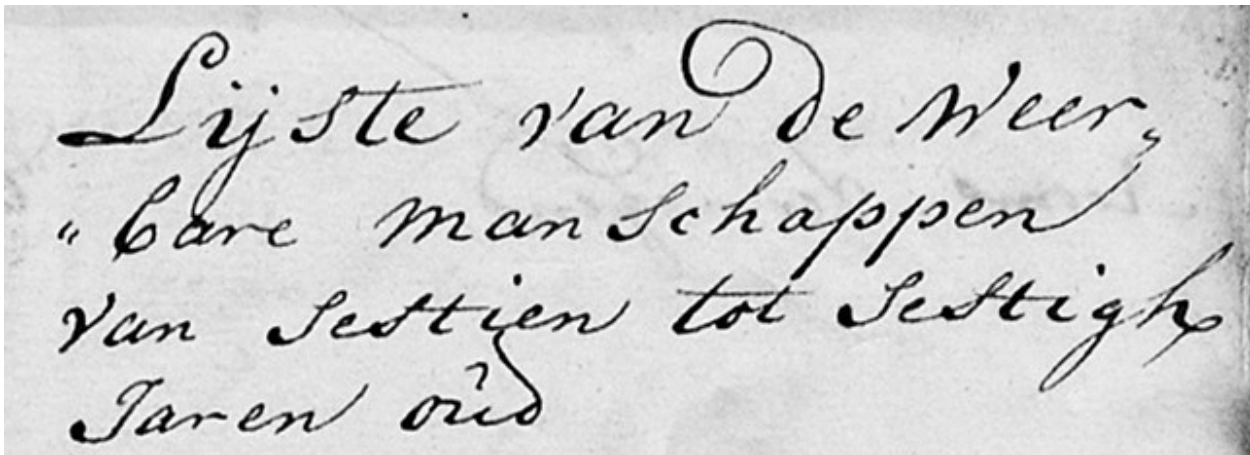 Lijste van de Weer„
„bare manschappen
van sestien tot sestigh
Jaren oûd